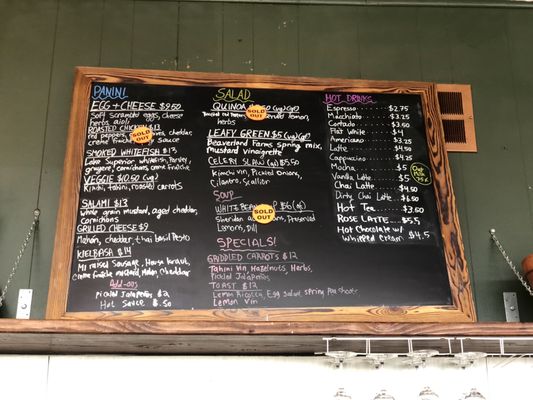 PANINI
EGG + CHEESE $9.50
Soft Scrambled eggs, cheese
herbs, aioli
ROASTED CHICKEN $13
red peppers, olives, cheddar,
crème fraîche sauce
SMOKED WHITEFISH $13
Lake Superior whitefish, Parsley,
gruyere, cornichons, crème fraîche
VEGGIE $10.50 (vg)
Kimchi, tahini, roasted carrots
SALAMI $13
whole grain mustard, aged cheddar,
Cornichons
GRILLED CHEESE $9
Mahón, cheddar, thai basil Pesto
KIELBASA $14
MI raised Sausage, Kraut,
crème fraîche mustard, Mahón, Cheddar
Add-ons
Pickled Jalapeños $2
Hot Sauce $.50
SALAD
QUINOA (vg)(gf)
lemon,
herbs
LEAFY GREEN $5 (vg)(gf)
Beaverland Farms spring mix,
Mustard vinaigrette
CELERY SLAW (vg) $5.50
Kimchi vin, Pickled Onions,
Cilantro, Scallion
SOUP
WHITE BEAN $6 (gf)
Preserved
Lemons, Dill
SPECIALS!
GRIDDLED CARROTS $12
Tahini Vin, Hazelnuts, Herbs,
Pickled Jalapeños
TOAST $12
Lemon Ricotta, Egg Salad, Spring Pea Shoots
Lemon Vin
SOLD OUT
SOLD OUT
SOLD OUT
HOT DRINKS
Espresso $2.75
Macchiato $3.25
Cortado $3.50
Flat White $4
Americano $3.25
Latte $4.50
Cappuccino $4.25
Mocha $5
Vanilla Latte $5
Chai Latte $4.50
Dirty Chai Latte $6.50
Hot Tea $3.50
ROSE LATTE $5.5
Hot Chocolate w/
Whipped Cream $4.5
Oat Milk